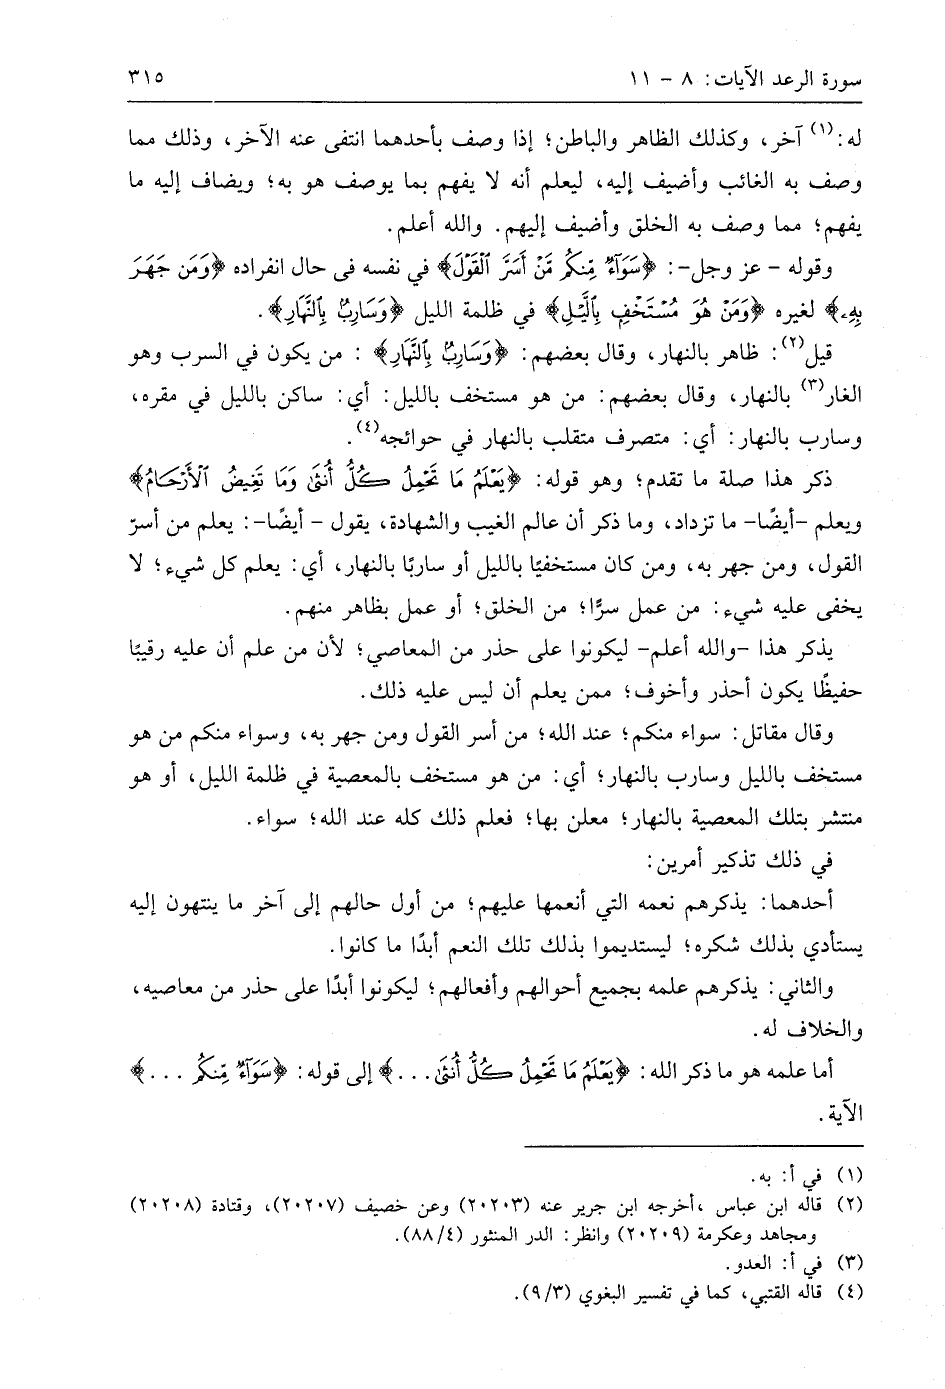 سورة الرعد الآيات: ٨ - ١١ ٣١٥
له:(١) آخر، وكذلك الظاهر والباطن؛ إذا وصف بأحدهما انتفى عنه الآخر، وذلك مما
وصف به الغائب وأضيف إليه، ليعلم أنه لا يفهم بما يوصف هو به؛ ويضاف إليه ما
يفهم؛ مما وصف به الخلق وأضيف إليهم. والله أعلم.
وقوله - عز وجل-: ﴿سَوَآءٌ مِّنكُم مَّنْ أَسَرَّ ٱلْقَوْلَ﴾ في نفسه في حال انفراده ﴿وَمَن جَهَرَ
بِهِۦ﴾ لغيره ﴿وَمَنْ هُوَ مُسْتَخْفٍ بِٱلَّيْلِ﴾ في ظلمة الليل ﴿وَسَارِبٌ بِٱلنَّهَارِ﴾.
قيل(٢): ظاهر بالنهار، وقال بعضهم: ﴿وَسَارِبٌ بِٱلنَّهَارِ﴾ : من يكون في السرب وهو
الغار(٣) بالنهار، وقال بعضهم: من هو مستخف بالليل: أي: ساكن بالليل في مقره،
وسارب بالنهار: أي: متصرف متقلب بالنهار في حوائجه(٤).
ذكر هذا صلة ما تقدم؛ وهو قوله: ﴿يَعْلَمُ مَا تَحْمِلُ كُلُّ أُنثَىٰ وَمَا تَغِيضُ ٱلْأَرْحَامُ﴾
ويعلم -أيضًا- ما تزداد، وما ذكر أن عالم الغيب والشهادة، يقول - أيضًا-: يعلم من أسرّ
القول، ومن جهر به، ومن كان مستخفيًا بالليل أو ساربًا بالنهار، أي: يعلم كل شيء؛ لا
يخفى عليه شيء: من عمل سرًّا؛ من الخلق؛ أو عمل بظاهر منهم.
يذكر هذا -والله أعلم- ليكونوا على حذر من المعاصي؛ لأن من علم أن عليه رقيبًا
حفيظًا يكون أحذر وأخوف؛ ممن يعلم أن ليس عليه ذلك.
وقال مقاتل: سواء منكم؛ عند الله؛ من أسر القول ومن جهر به، وسواء منكم من هو
مستخف بالليل وسارب بالنهار؛ أي: من هو مستخف بالمعصية في ظلمة الليل، أو هو
منتشر بتلك المعصية بالنهار؛ معلن بها؛ فعلم ذلك كله عند الله؛ سواء.
في ذلك تذكير أمرين:
أحدهما: يذكرهم نعمه التي أنعمها عليهم؛ من أول حالهم إلى آخر ما ينتهون إليه
يستأدي بذلك شكره؛ ليستديموا بذلك تلك النعم أبدًا ما كانوا.
والثاني: يذكرهم علمه بجميع أحوالهم وأفعالهم؛ ليكونوا أبدًا على حذر من معاصيه،
والخلاف له.
أما علمه هو ما ذكر الله: ﴿يَعْلَمُ مَا تَحْمِلُ كُلُّ أُنثَىٰ...﴾ إلى قوله: ﴿سَوَآءٌ مِّنكُم ...﴾
الآية.
(١) في أ: به.
(٢) قاله ابن عباس ،أخرجه ابن جرير عنه (٢٠٢٠٣) وعن خصيف (٢٠٢٠٧)، وقتادة (٢٠٢٠٨)
ومجاهد وعكرمة (٢٠٢٠٩) وانظر: الدر المنثور (٨٨/٤).
(٣) في أ: العدو.
(٤) قاله القتبي، كما في تفسير البغوي (٩/٣).